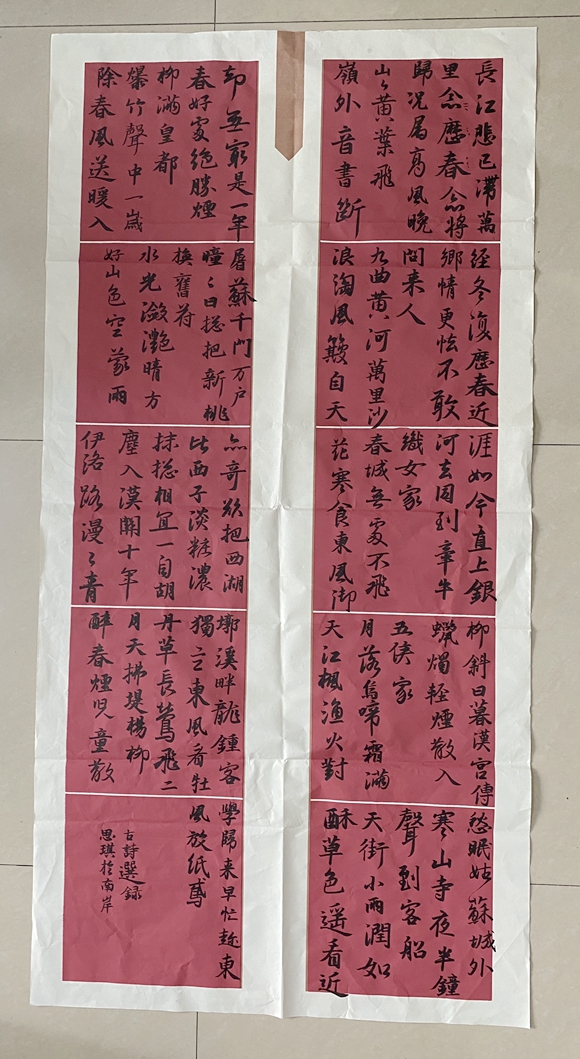 長江悲已滯萬
里念歷春念將
歸況屬高風晚
山々黄葉飛
嶺外音書斷
經冬復歷春近
鄉情更怯不敢
問来人
九曲黄河萬里沙
浪淘風簸自天
涯如今直上銀
河去同到牽牛
織女家
春城無處不飛
花寒食東風御
柳斜日暮漢宫傳
蠟燭輕煙散入
五侯家
月落烏啼霜滿
天江楓漁火對
愁眠姑蘇城外
寒山寺夜半鐘
聲到客船
天街小雨潤如
酥草色遥看近
却無㝡是一年
春好處絶勝煙
柳滿皇都
爆竹聲中一歲
除春風送暖入
屠蘇千門万户
曈々日揔把新桃
換舊符
水光瀲灧晴方
好山色空蒙雨
亦奇欲把西湖
比西子淡粧濃
抹揔相宜一自胡
塵入漢關十年
伊洛路漫々青
墩溪畔龍鍾客
獨立東風看牡
丹草長鶯飛二
月天拂堤楊柳
醉春煙兒童散
學歸来早忙趁東
風放紙鳶
古詩選録
思琪於南岸